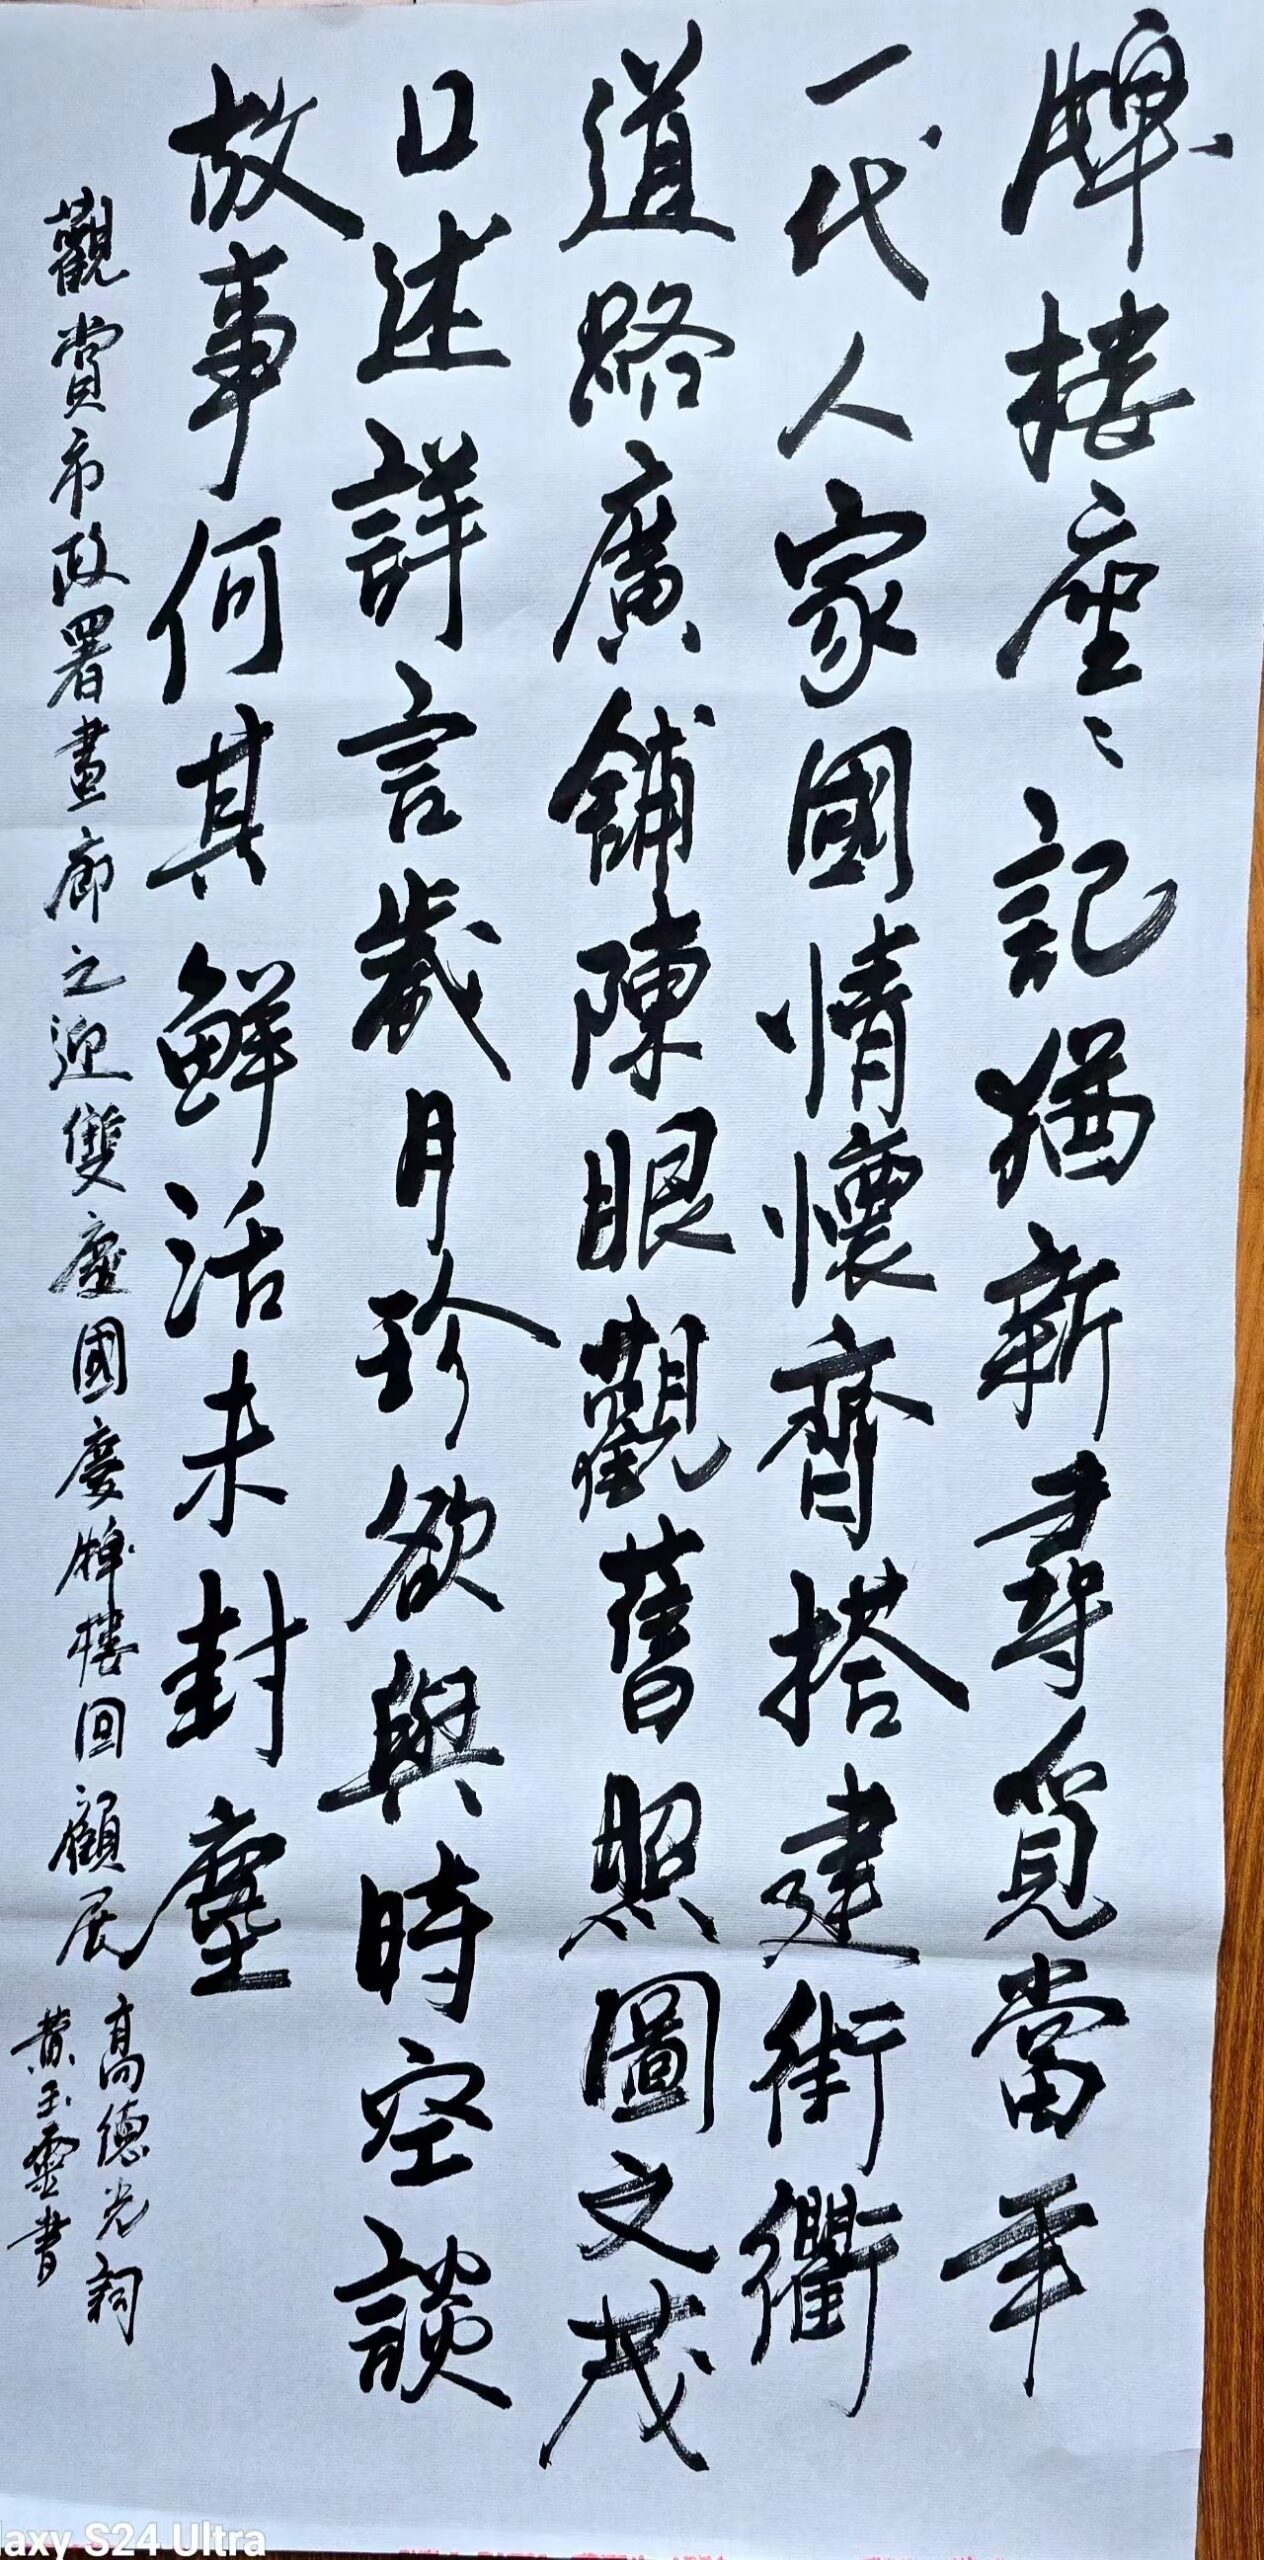 牌樓座〻記猶新尋覓當年
一代人家國情懷齊搭建街衢
道路廣鋪陳眼觀舊照圖文茂
口述詳言歲月珍欲與時空談
故事何其鮮活未封塵
觀賞市政署畫廊之迎雙慶國慶牌樓回顧展
高德光詞
黃玉靈書
laxy S24 Ultra